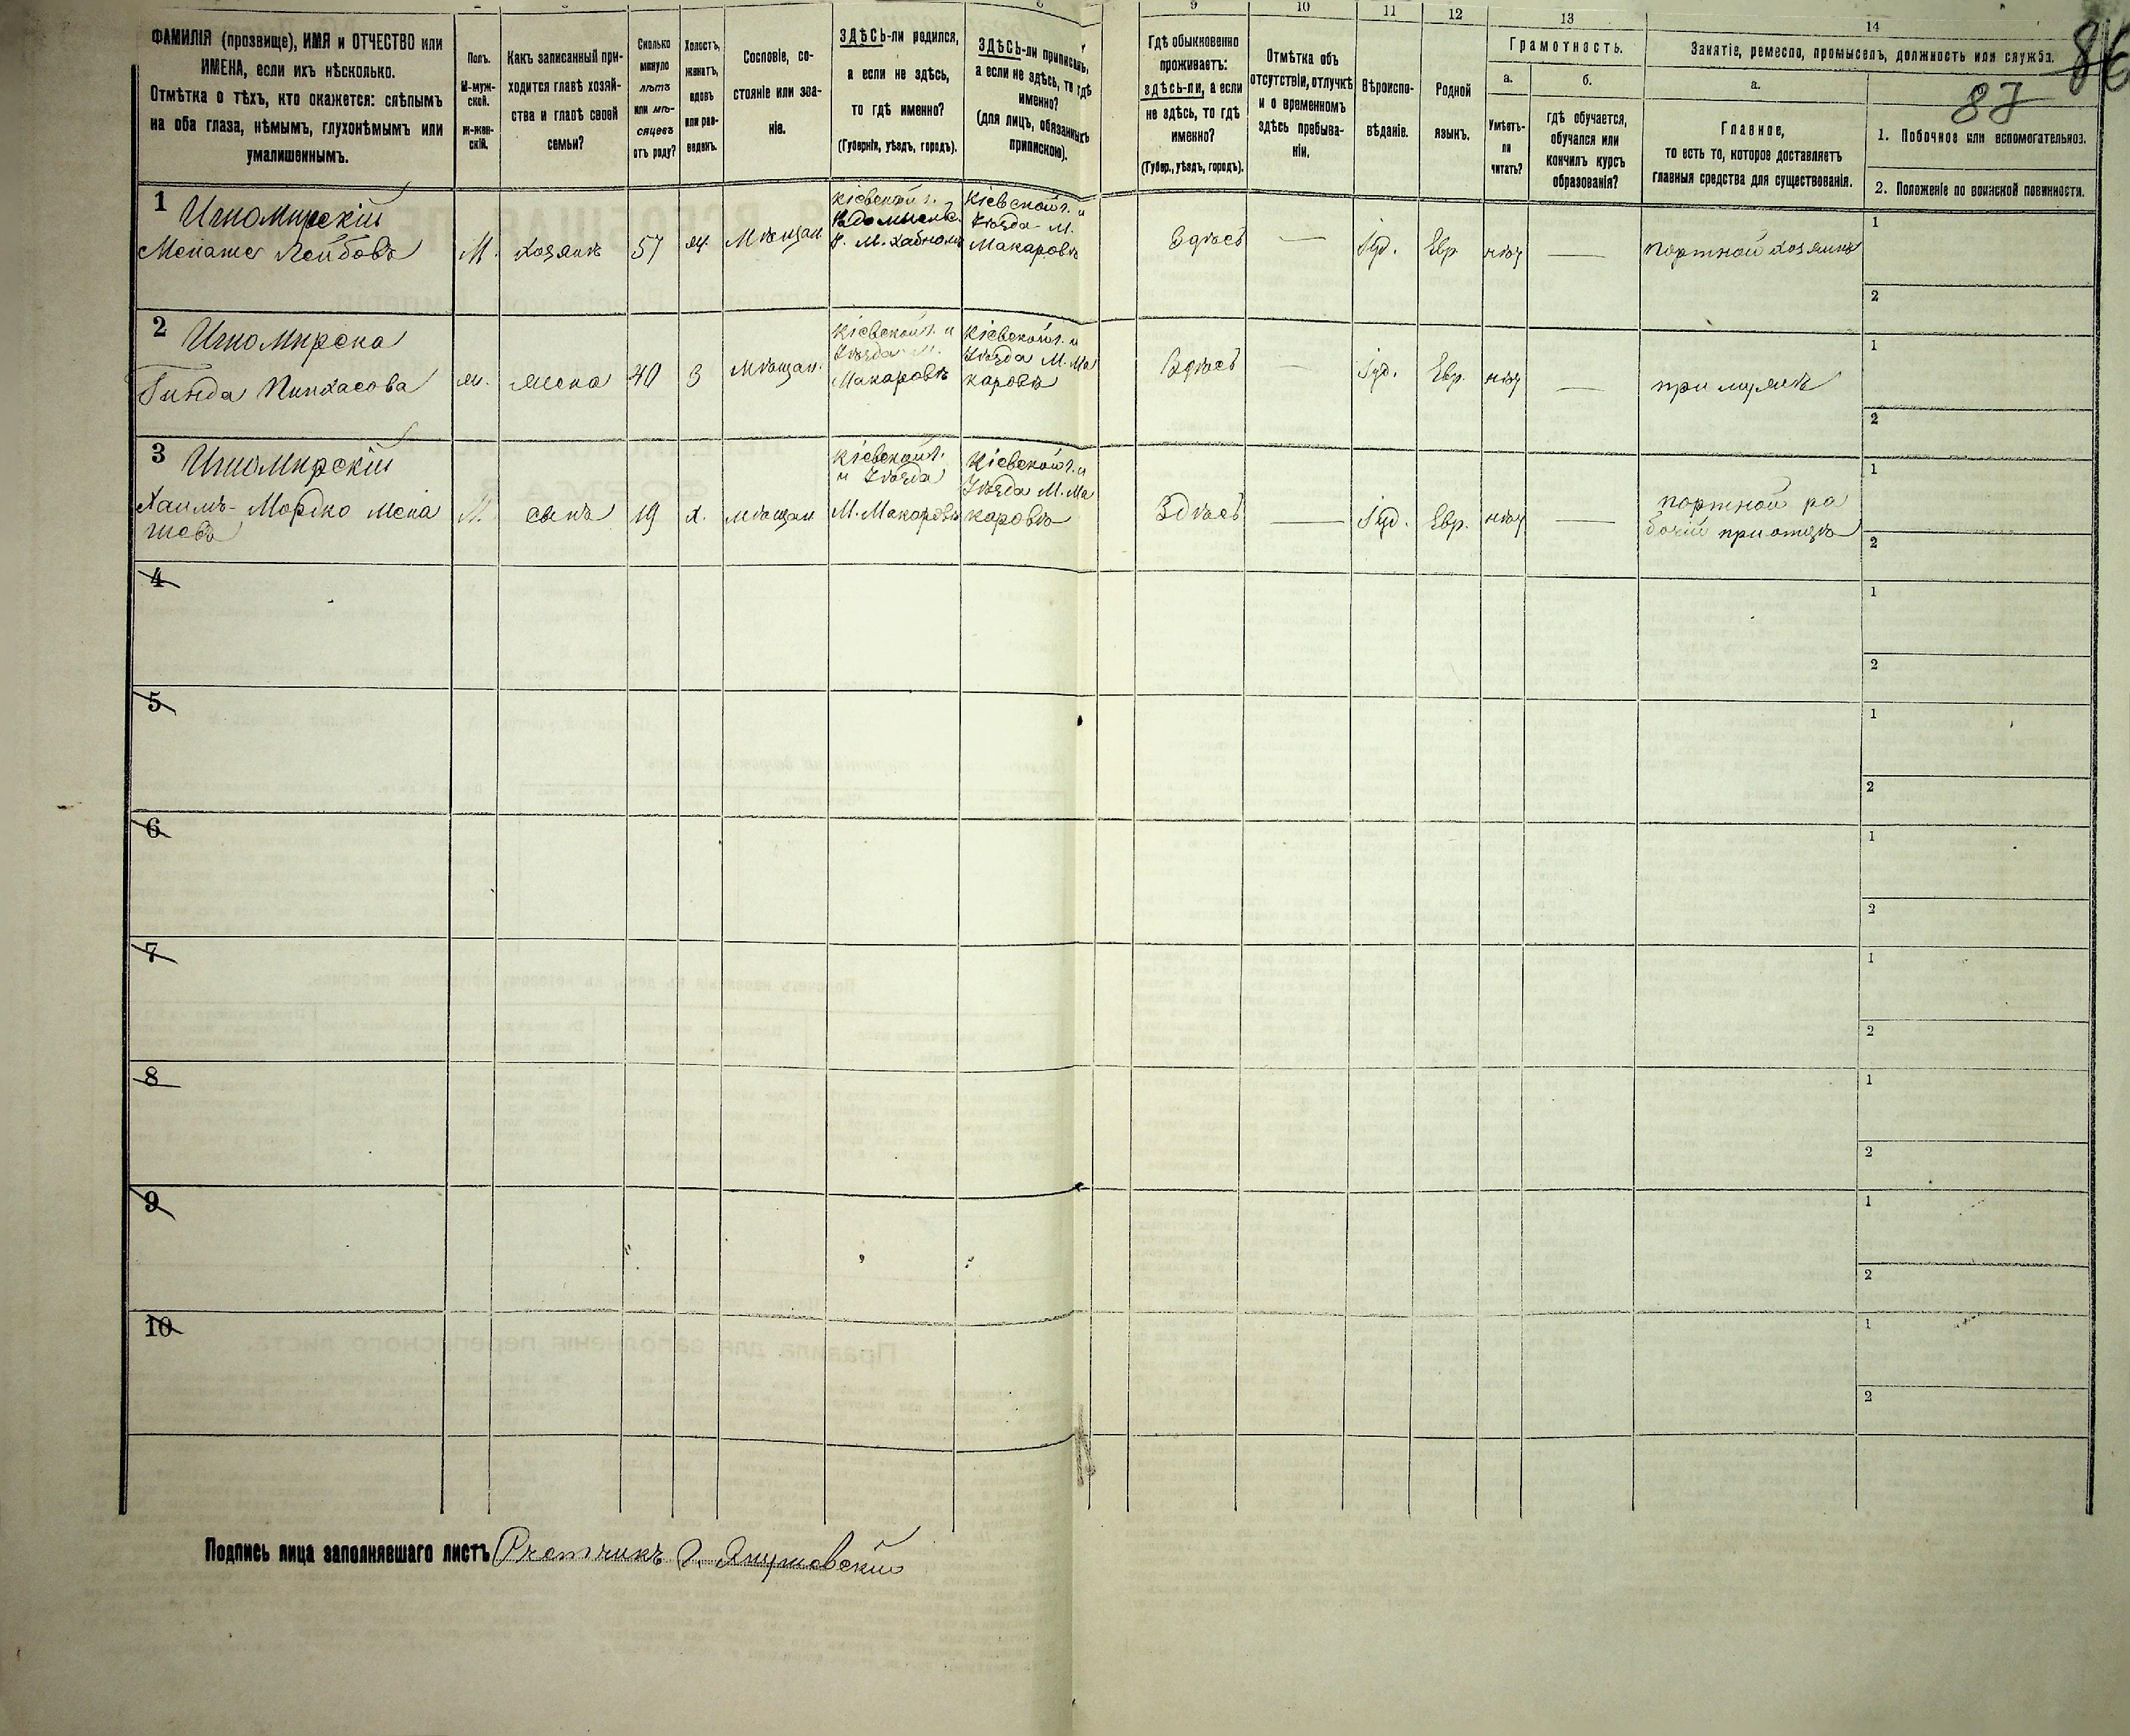 8
9
10
11
12
13
14
86
87
ФАМИЛІЯ (прозвище), ИМЯ и ОТЧЕСТВО или
ИМЕНА, если ихъ нѣсколько.
Отмѣтка о тѣхъ, кто окажется: слѣпымъ
на оба глаза, нѣмымъ, глухонѣмымъ или
умалишеннымъ.
Полъ.
М-муж-
ской.
Ж-жен-
скій.
Какъ записанный при-
ходится главѣ хозяй-
ства и главѣ своей
семьи?
Сколько
минуло
лѣтъ
или мѣ-
сяцевъ
отъ роду?
Холостъ,
женатъ,
вдовъ
или раз-
веденъ.
Сословіе, со-
стояніе или зва-
ніе.
ЗДѢСЬ-ли родился,
а если не здѣсь,
то гдѣ именно?
(Губернія, уѣздъ, городъ).
ЗДѢСЬ-ли приписанъ,
а если не здѣсь, то гдѣ
именно?
(для лицъ, обязанныхъ
припискою).
Гдѣ обыкновенно
проживаетъ:
здѣсь-ли, а если
не здѣсь, то гдѣ
именно?
(Губер., уѣздъ, городъ).
Отмѣтка объ
отсутствіи, отлучкѣ
и о временномъ
здѣсь пребыва-
ніи.
Вѣроиспо-
вѣданіе.
Родной
языкъ.
Грамотность.
а.
Умѣетъ-
ли
читать?
б.
гдѣ обучается,
обучался или
кончилъ курсъ
образованія?
Занятіе, ремесло, промыселъ, должность или служба.
а.
Главное,
то есть то, которое доставляетъ
главныя средства для существованія.
1. Побочное или вспомогательное.
2. Положеніе по воинской повинности.
1
Менаше Лейбовъ
М.
хозяинъ
57
ж.
Мѣщан.
Кіевской г.
М.
Кіевской г. и
Уѣзда М.
Макаровъ
Здѣсь
—
Іуд.
Евр.
нѣт
—
портной хозяинъ
1
2
2
Пинхасова
ж.
жена
40
З
Мѣщан.
Кіевской г. и
Уѣзда М.
Макаровъ
Кіевской г. и
Уѣзда М. Ма
каровъ
Здѣсь
—
Іуд.
Евр.
нѣт
—
при мужѣ
1
2
3
Хаимъ-Мордко Мена
шевъ
М.
сынъ
19
х.
мѣщан
Кіевской г.
и Уѣзда
М. Макаровъ
Кіевской г. и
Уѣзда М. Ма
каровъ
Здѣсь
—
Іуд.
Евр.
нѣт
—
портной ра
бочій при отцѣ
1
2
4
1
2
5
1
2
6
1
2
7
1
2
8
1
2
9
1
2
10
1
2
Подпись лица заполнявшаго листъ